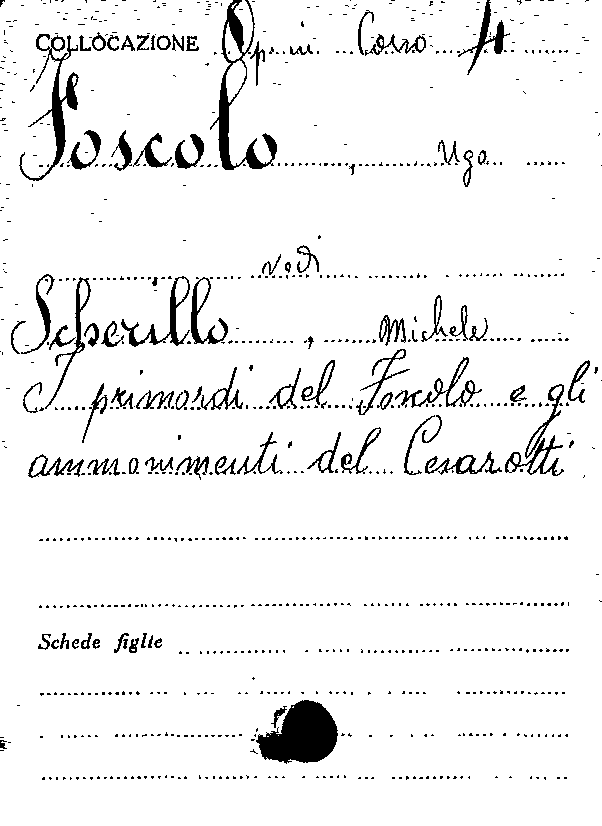 COLLOCAZIONE Op. in Corso 4
Foscolo, Ugo
vedi
Scherillo, Michele
I primordi del Foscolo e gli
ammonimenti del Cesarotti
Schede figlie